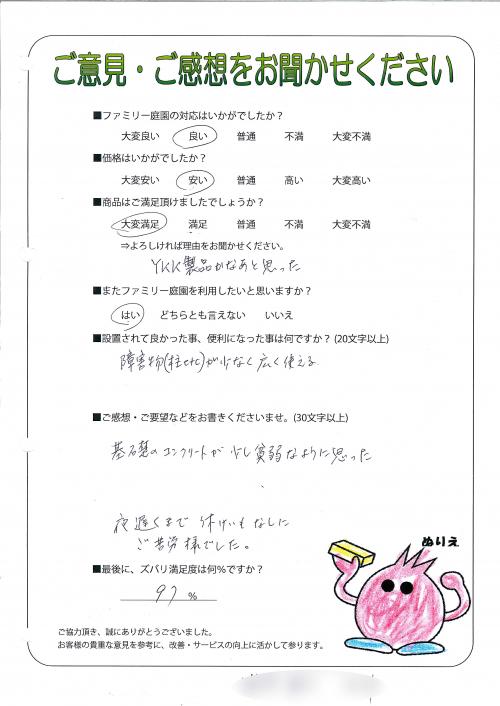 ご意見・ご感想をお聞かせください
■ファミリー庭園の対応はいかがでしたか？
大変良い 良い 普通 不満 大変不満
■価格はいかがでしたか？
大変安い 安い 普通 高い 大変高い
■商品はご満足頂けましたでしょうか？
大変満足 満足 普通 不満 大変不満
⇒よろしければ理由をお聞かせください。
YKK製品かなあと思った
■またファミリー庭園を利用したいと思いますか？
はい どちらとも言えない いいえ
■設置されて良かった事、便利になった事は何ですか？(20文字以上)
障害物(柱etc)が少なく広く使える
■ご感想・ご要望などをお書きくださいませ。(30文字以上)
基礎のコンクリートが少し貧弱なように思った
夜遅くまで休けいもなしに
ご苦労様でした。
ぬりえ
■最後に、ズバリ満足度は何％ですか？
97 %
ご協力頂き、誠にありがとうございました。
お客様の貴重な意見を参考に、改善・サービスの向上に活かして参ります。